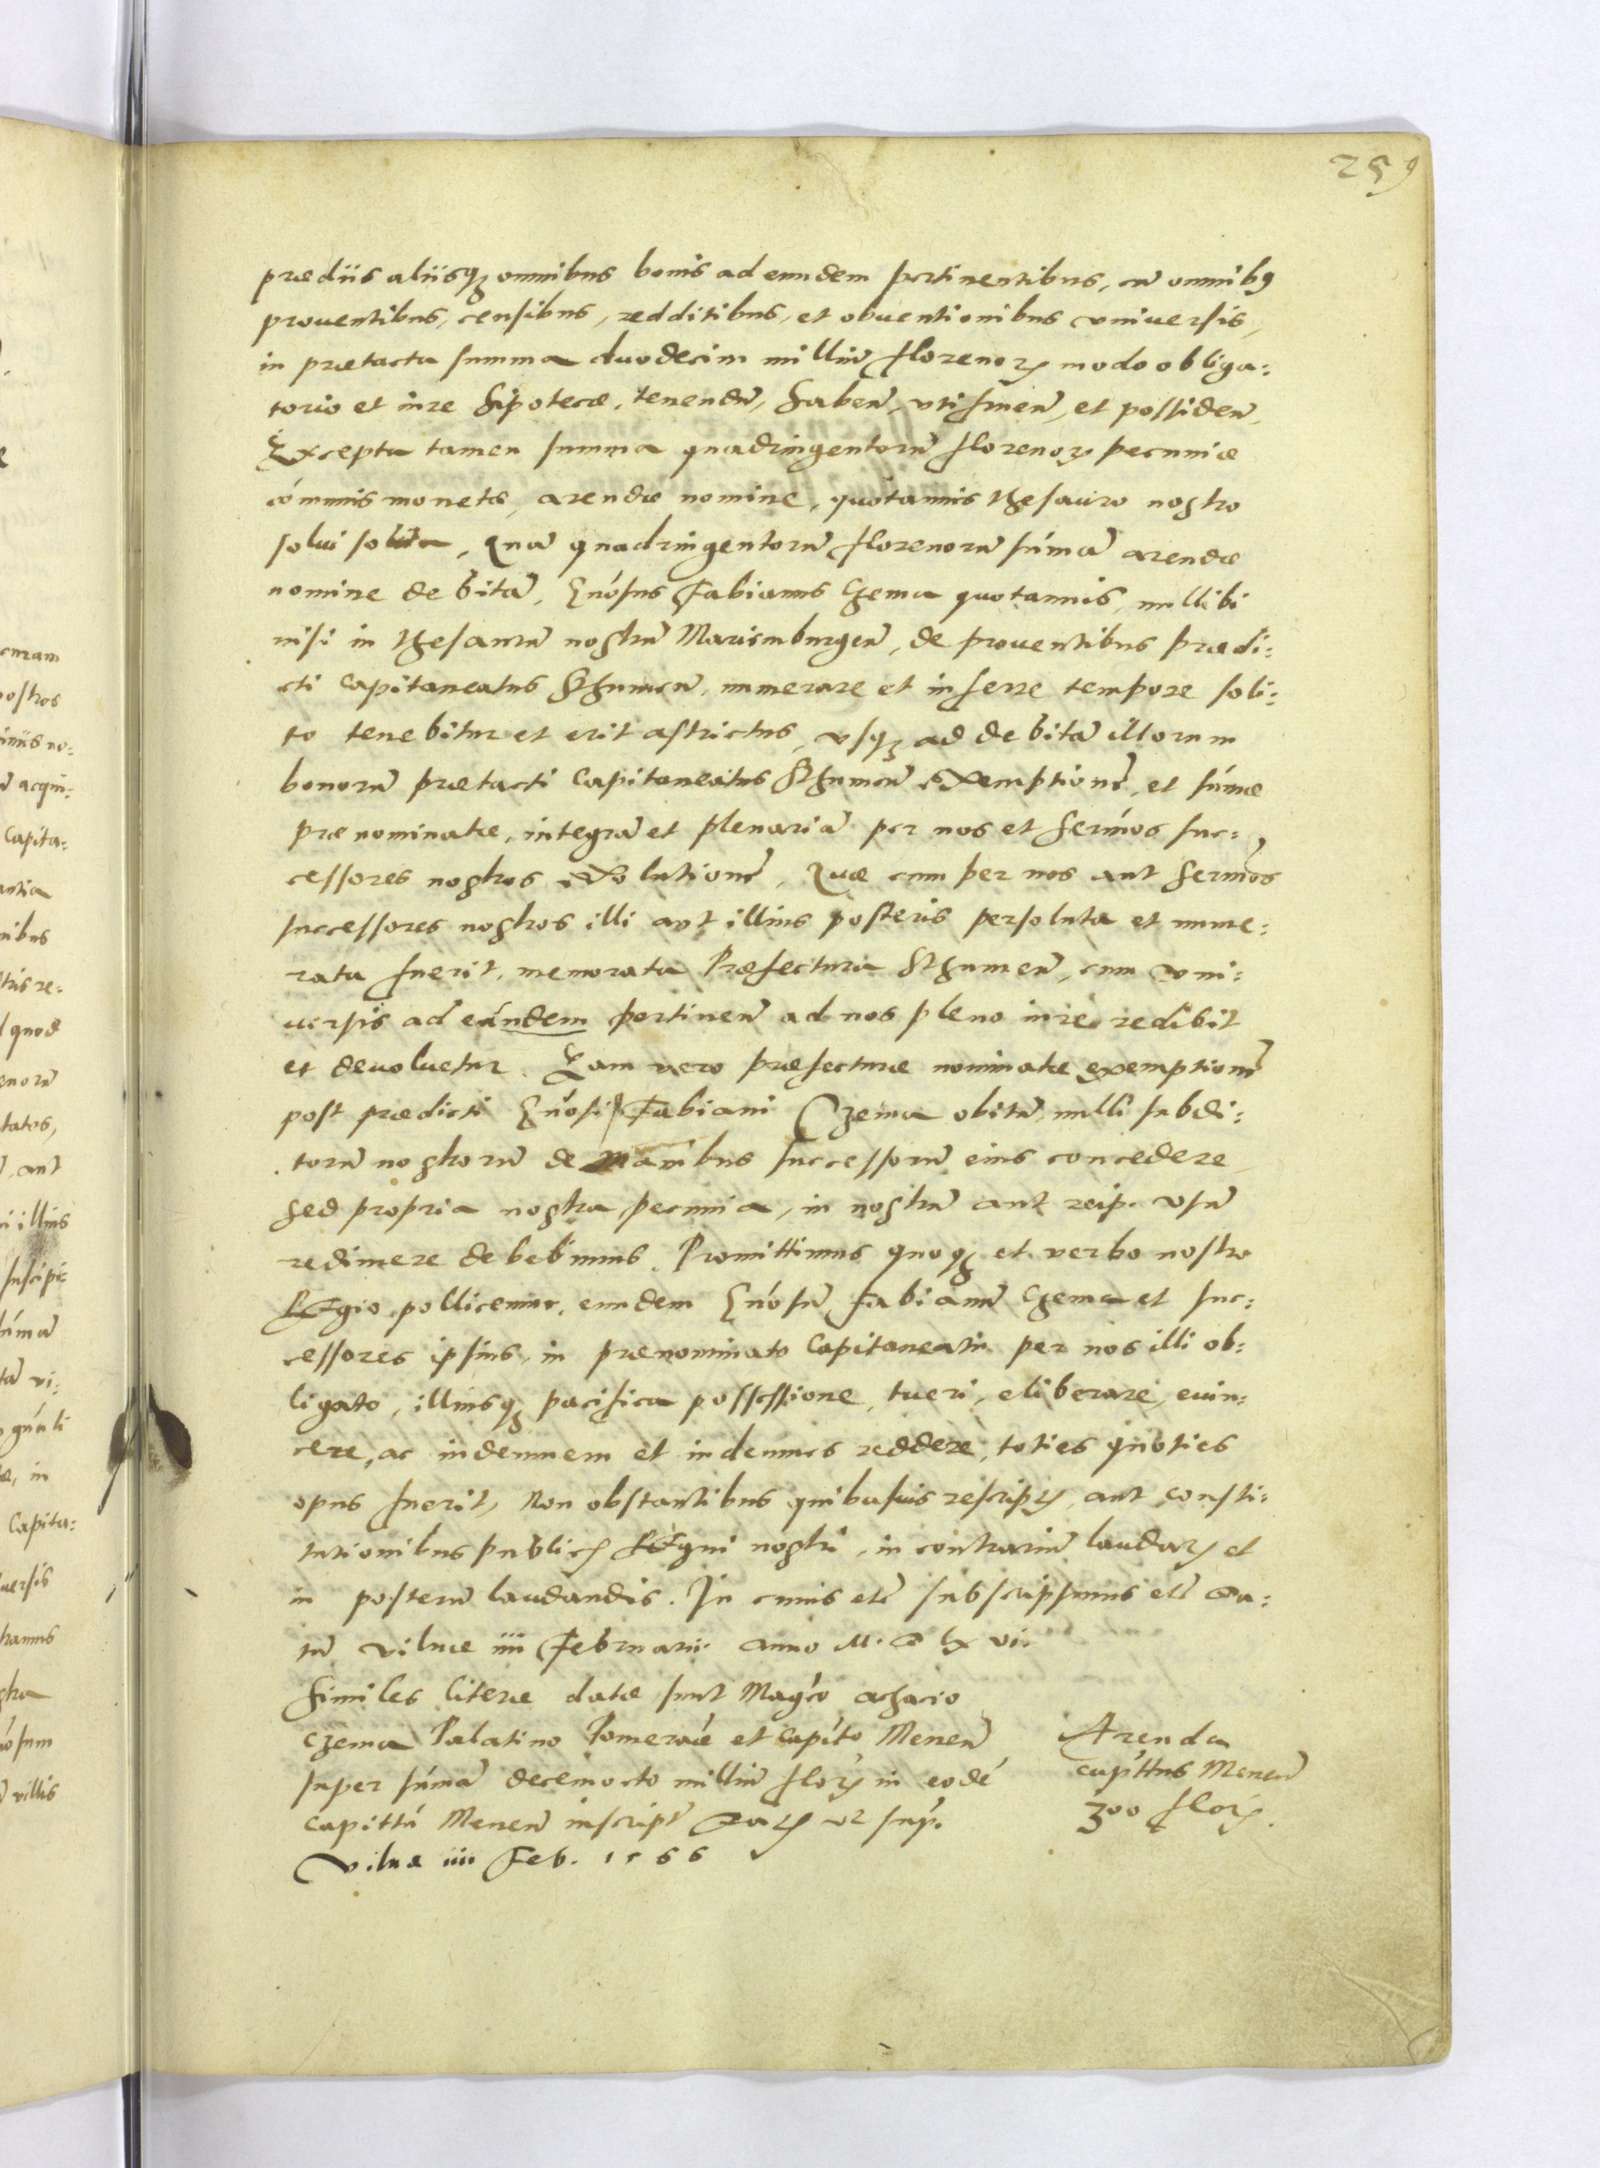 259
prædiis aliisqz omnibus bonis ad eundem pertinentibus, cũ omnibꝰ
prouentibus, censibus, redditibus, et obuentionibus vniuersis,
in prætacta summa duodecim milliũ florenoꝝ modo obliga:
torio et iure hipotecæ, tenendũ, habenđ, vti fruenđ, et possidenđ,
Excepta tamen summa quadringentorũ florenoꝝ pecuniæ
cõmunis monetæ, arendæ nomine, quotannis thesauro nostro
solui solita, Quã quadringentorũ florenorũ sũmã arendæ
nomine debitã, Gnõsus Fabianus Czema quotannis, nullibi
nisi in thesaurũ nostrũ Mariemburgeñ, de prouentibus prædi:
cti Capitaneatus Sthumeñ, numerare et inferre tempore soli:
to tenebitur et erit astrictus, vsqz ad debitã illorum
bonorũ prætacti Capitaneatus Sthumeñ exemptionẽ, et sũmæ
prænominatæ, integrã et plenariã per nos et serm̃os suc:
cessores nostros exolutionẽ, Quæ cum per nos aut serm̃os
successores nostros illi aut illius posteris persoluta et nume:
rata fuerit, memorata Præfectura Sthumeñ, cum vni:
uersis ad eandem pertineñ ad nos pleno iure redibit
et deuoluetur. Eam vero præfecturæ nominatæ exemptionẽ
post prædicti Gnõsi Fabiani Czema obitũ, nulli subdi:
torũ nostrorũ de manibus successorũ eius concedere,
sed propria nostra pecunia, in nostrũ aut reip. vsũ
redimere debebimus. Promittimus quoqz et verbo nostro
REgio pollicemur, eundem Gnõsũ Fabianũ Czema et suc:
cessores ipsius, in prænominato Capitaneatu per nos illi ob:
ligato, illiusqz pacifica possessione, tueri, eliberare, euin:
cere, ac indemnem et indemnes reddere, toties quoties
opus fuerit, Non obstantibus quibusuis rescriptꝭ, aut consti:
tutionibus publicꝭ REgni nostri, in contrariũ laudatꝭ et
in posterũ laudandis. In cuius etc̃ subscripsimus etc̃ Da:
tũ Vilnæ iiii Februarii anno M. D lxvi.
Similes literæ datæ sunt Magco achacio
Czema Palatino Pomeraẽ et Capitõ Meueñ
super sũmã decemocto milliũ floꝝ in eodẽ
Capittũ Meueñ inscripť Datꝭ vt sup.
Vilnæ iiii Feb. 1566
Arenda
capittus Meueñ
300 floꝝ.